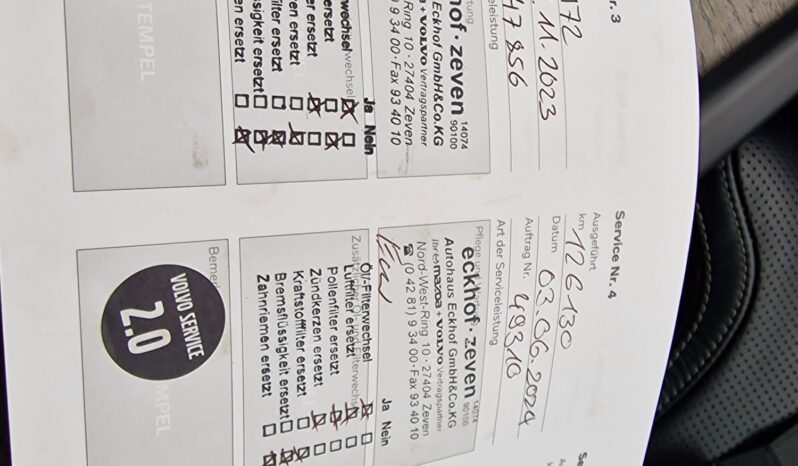 r. 3
72
11.2023
47856
erviceleistung
rtung
hof · zeven
14074
90100
Eckhof GmbH&Co.KG
+ VOLVO Vertragspartner
Ring 10 · 27404 Zeven
9 34 00 · Fax 93 40 10
Ja Nein
rwechsel
ersetzt
er ersetzt
ren ersetzt
filter ersetzt
üssigkeit ersetzt
en ersetzt
TEMPEL
Service Nr. 4
Ausgeführt
km 126130
Datum 03.06.2024
Auftrag Nr. 49310
Art der Serviceleistung
eckhof · zeven
14074
90100
Autohaus Eckhof GmbH&Co.KG
Ihr mazda + VOLVO Vertragspartner
Nord-West-Ring 10 · 27404 Zeven
☎ (0 42 81) 9 34 00 · Fax 93 40 10
Ja Nein
Öl-/Filterwechsel
Luftfilter ersetzt
Pollenfilter ersetzt
Zündkerzen ersetzt
Kraftstofffilter ersetzt
Bremsflüssigkeit ersetzt
Zahnriemen ersetzt
Bemer
VOLVO SERVICE
2.0
MPEL
Se